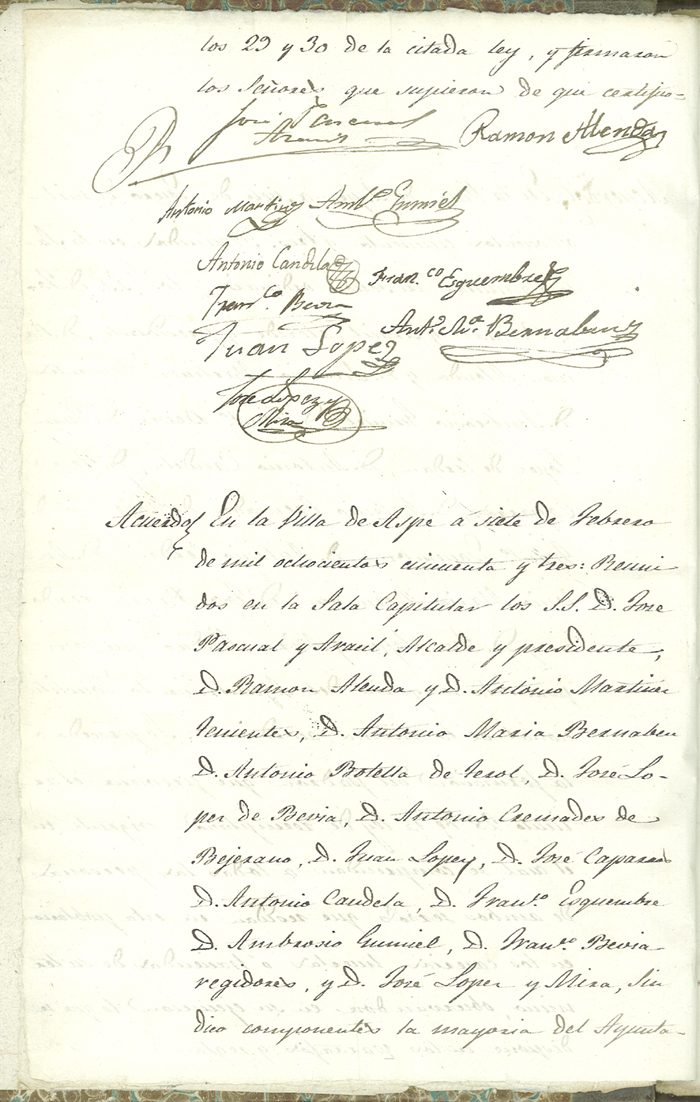 los 29 y 30 de la citada ley, y firmaron
los Señores que supieron de que certifico-
José Pascual
Aracil
Ramon Alenda
Antonio Martinez Ambº Gumiel
Antonio Candela
Fran.co Esquembre
Fran.co Bevia
Juan Lopez
Antº Mª Bernabeu
José Lopez y
Mira
Acuerdo
En la Villa de Aspe á siete de Febrero
de mil ochocientos cincuenta y tres: Reuni
dos en la Sala Capitular los S.S. D. José
Pascual y Aracil, Alcalde y presidente,
D. Ramon Alenda y D. Antonio Martinez
tenientes, D. Antonio Maria Bernabeu
D. Antonio Botella de Terol, D. José Lo-
pez de Bevia, D. Antonio Cremades de
Bejerano, D. Juan Lopez, D. José Caparros
D. Antonio Candela, D. Franco. Esquembre
D. Ambrosio Gumiel, D. Franco. Bevia
regidores, y D. José Lopez y Mira, Sin
dico componentes la mayoria del Ayunta-